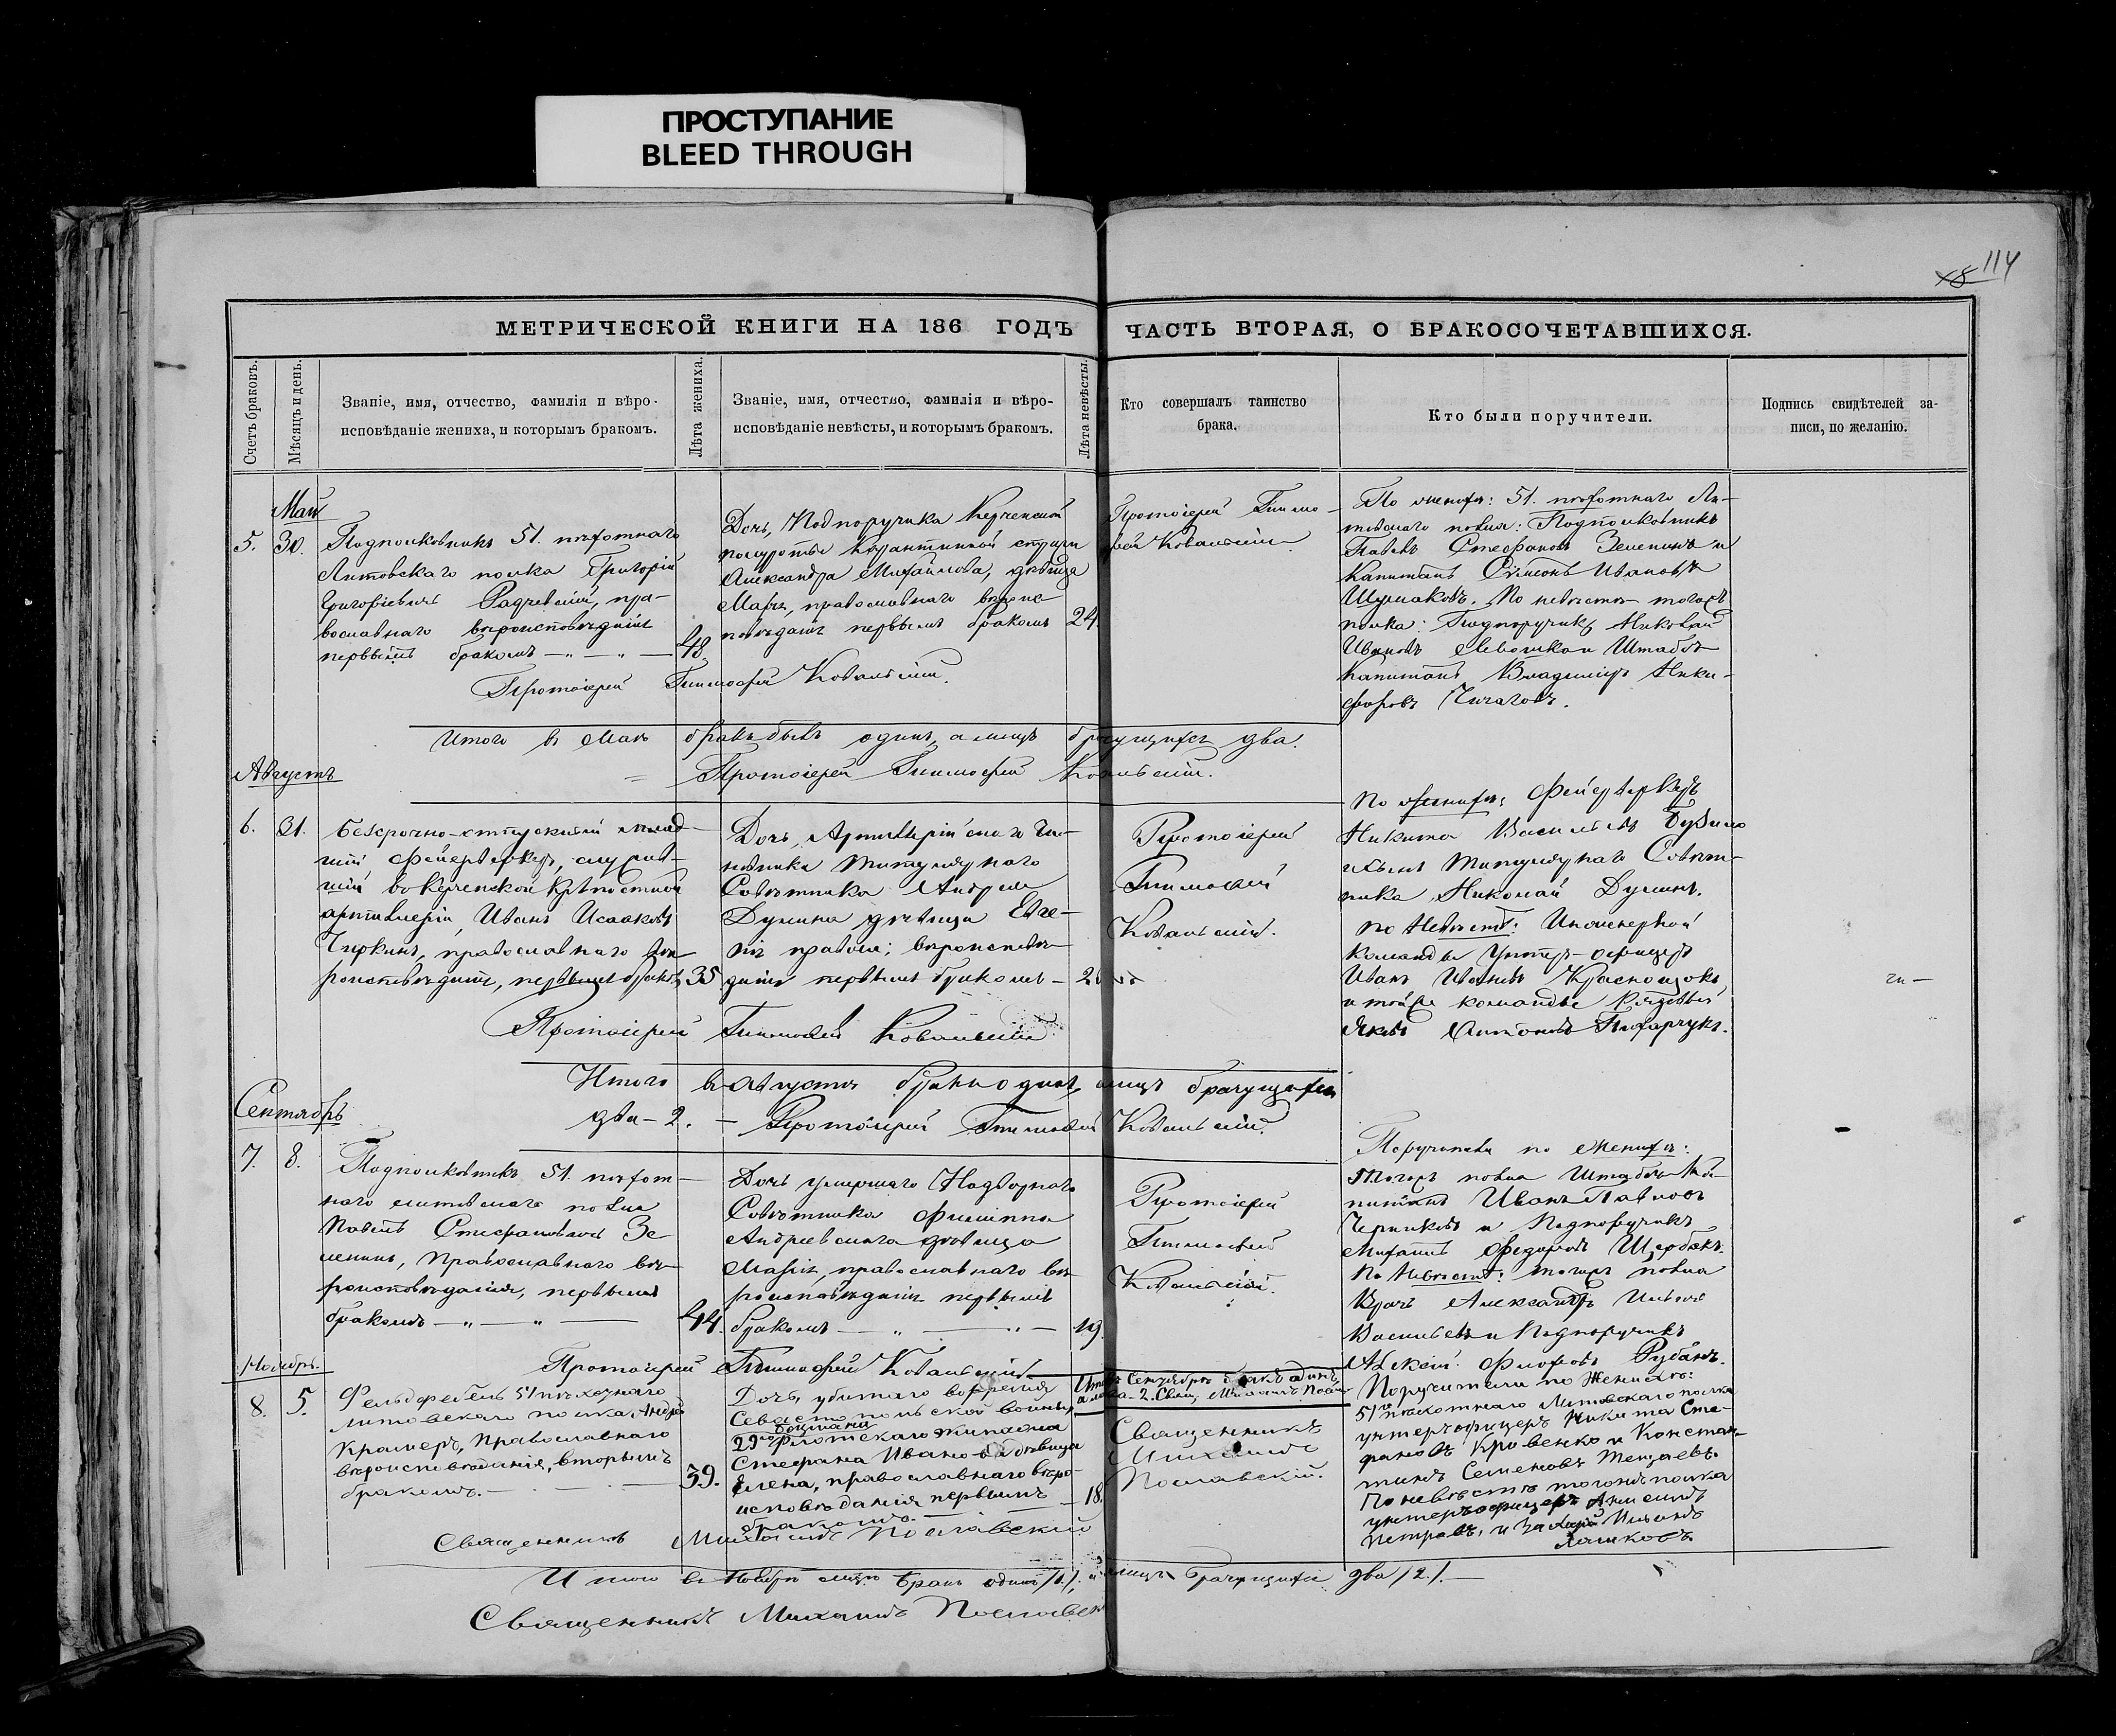 ПРОСТУПАНИЕ
BLEED THROUGH
114
МЕТРИЧЕСКОЙ КНИГИ НА 186 ГОДЪ
ЧАСТЬ ВТОРАЯ, О БРАКОСОЧЕТАВШИХСЯ.
Счетъ браковъ.
Мѣсяцъ и день.
Званіе, имя, отчество, фамилія и вѣро-
исповѣданіе жениха, и которымъ бракомъ.
Лѣта жениха.
Званіе, имя, отчество, фамилія и вѣро-
исповѣданіе невѣсты, и которымъ бракомъ.
Лѣта невѣсты.
Кто совершалъ таинство
брака.
Кто были поручители.
Подпись свидѣтелей за-
писи, по желанію.
Май
5. 30.
Подполковникъ 51. пѣхотнаго
Литовскаго полка Григорій
Григорьевичъ Радчевскій, пра-
вославнаго вѣроисповѣданія
первымъ бракомъ
48.
Дочь, Подпоручика Керченской
полуроты Карантинной стражи
Александра Михайлова, дѣвица
Марія, православнаго вѣроис
повѣданія первымъ бракомъ
24.
Протоіерей Тимо-
фей Ковальскій
По женихѣ: 51. пѣхотнаго Ли-
товскаго полка: Подполковникъ
Павелъ Стефановъ Зеленинъ и
Капитанъ Сѵмеонъ Ивановъ
Шумаковъ. По невѣстѣ тогожъ
полка: Подпоручикъ Николай
Ивановъ Левошка и Штабсъ
Капитанъ Владиміръ Ники-
форовъ Чичаговъ.
Протоіерей Тимофей Ковальскій.
Итого въ Маѣ бракъ былъ одинъ, а лицъ брачущихся два.
Протоіерей Тимофей Ковальскій.
Августъ
6. 31.
Безсрочно-отпускный млад-
шій фейерверкеръ, служив-
шій въ Керченской крѣпостной
артиллеріи, Иванъ Исааковъ
Чиркинъ, православнаго вѣ
роисповѣданія, первымъ бракомъ
35
Дочь, Артиллерійскаго Чи-
новника титулярнаго
Совѣтника Андрея
Думина дѣвица Евге-
нія правосл; вѣроисповѣ
данія первымъ бракомъ
Протоіерей
Тимофей
Ковальскій.
По женихѣ: Фейерверкеръ
Никита Васильевъ
и сынъ титулярнаго Совѣт-
ника Николай Думинъ.
По Невѣстѣ: Инженерной
команды Унтеръ-офицеръ
Иванъ Ивановъ Краснощокъ,
и тойже команды Рядовый
Яковъ Антоновъ
Протоіерей Тимофей Ковальскій
Итого въ Августѣ бракъ одинъ, лицъ брачущихся
два-2. - Протоіерей Тимофей Ковальскій.
Сентябрь
7. 8.
Подполковникъ 51. пѣхот-
наго литовскаго полка
Павелъ Стефановичъ Зе
ленинъ, Православнаго вѣ-
роисповѣданія, первымъ
бракомъ
44.
Дочь умершаго Надворнаго
Совѣтника Филиппа
Андреевскаго дѣвица
Марія, православнаго вѣ
роисповѣданія первымъ
бракомъ
19.
Протоіерей
Тимофей
Ковальскій.
Поручители по Женихѣ:
Тогожъ полка Штабсъ Ка-
питанъ Иванъ Павловъ
Черниковъ и Подпоручикъ
Михаилъ Федоровъ Щербакъ.
По Невѣстѣ: тогожъ полка
Врачъ Александръ Ильичъ
Васильевъ и Подпоручикъ
Алексій Рубанъ.
Протоіерей Тимофей Ковальскій
Итого Сентябрѣ бракъ одинъ
а лица-2. Свящ, Михаилъ
Ноябрь.
8. 5.
Фельдфебель 51 пѣхотнаго
литовскаго полка, Андрей
Крамеръ, Православнаго
вѣроисповѣданія, вторымъ
бракомъ.
39.
Дочь убитаго во время
Севастопольской войны,
боцмана
29го флотскаго экипажа
Стефана Иванова дѣвица
Елена, православнаго вѣро-
исповѣданія первымъ
бракомъ.
18.
Священникъ
Михаилъ
Пославскій.
Поручители по Женихѣ:
51го пѣхотнаго Литовскаго полка
унтерофицеръ Никита Сте-
фановъ Кривенко и Констан-
тинъ Семеновъ
По невѣстѣ тогожъ полка
унтерофицеръ
Петровъ, и Захарій Ильинъ
Лошковъ
Священникъ Михаилъ Пославскій
Итого въ Ноябрѣ мцѣ бракъ одинъ /1./. а лицъ брачущихся два /2./.
Священникъ Михаилъ